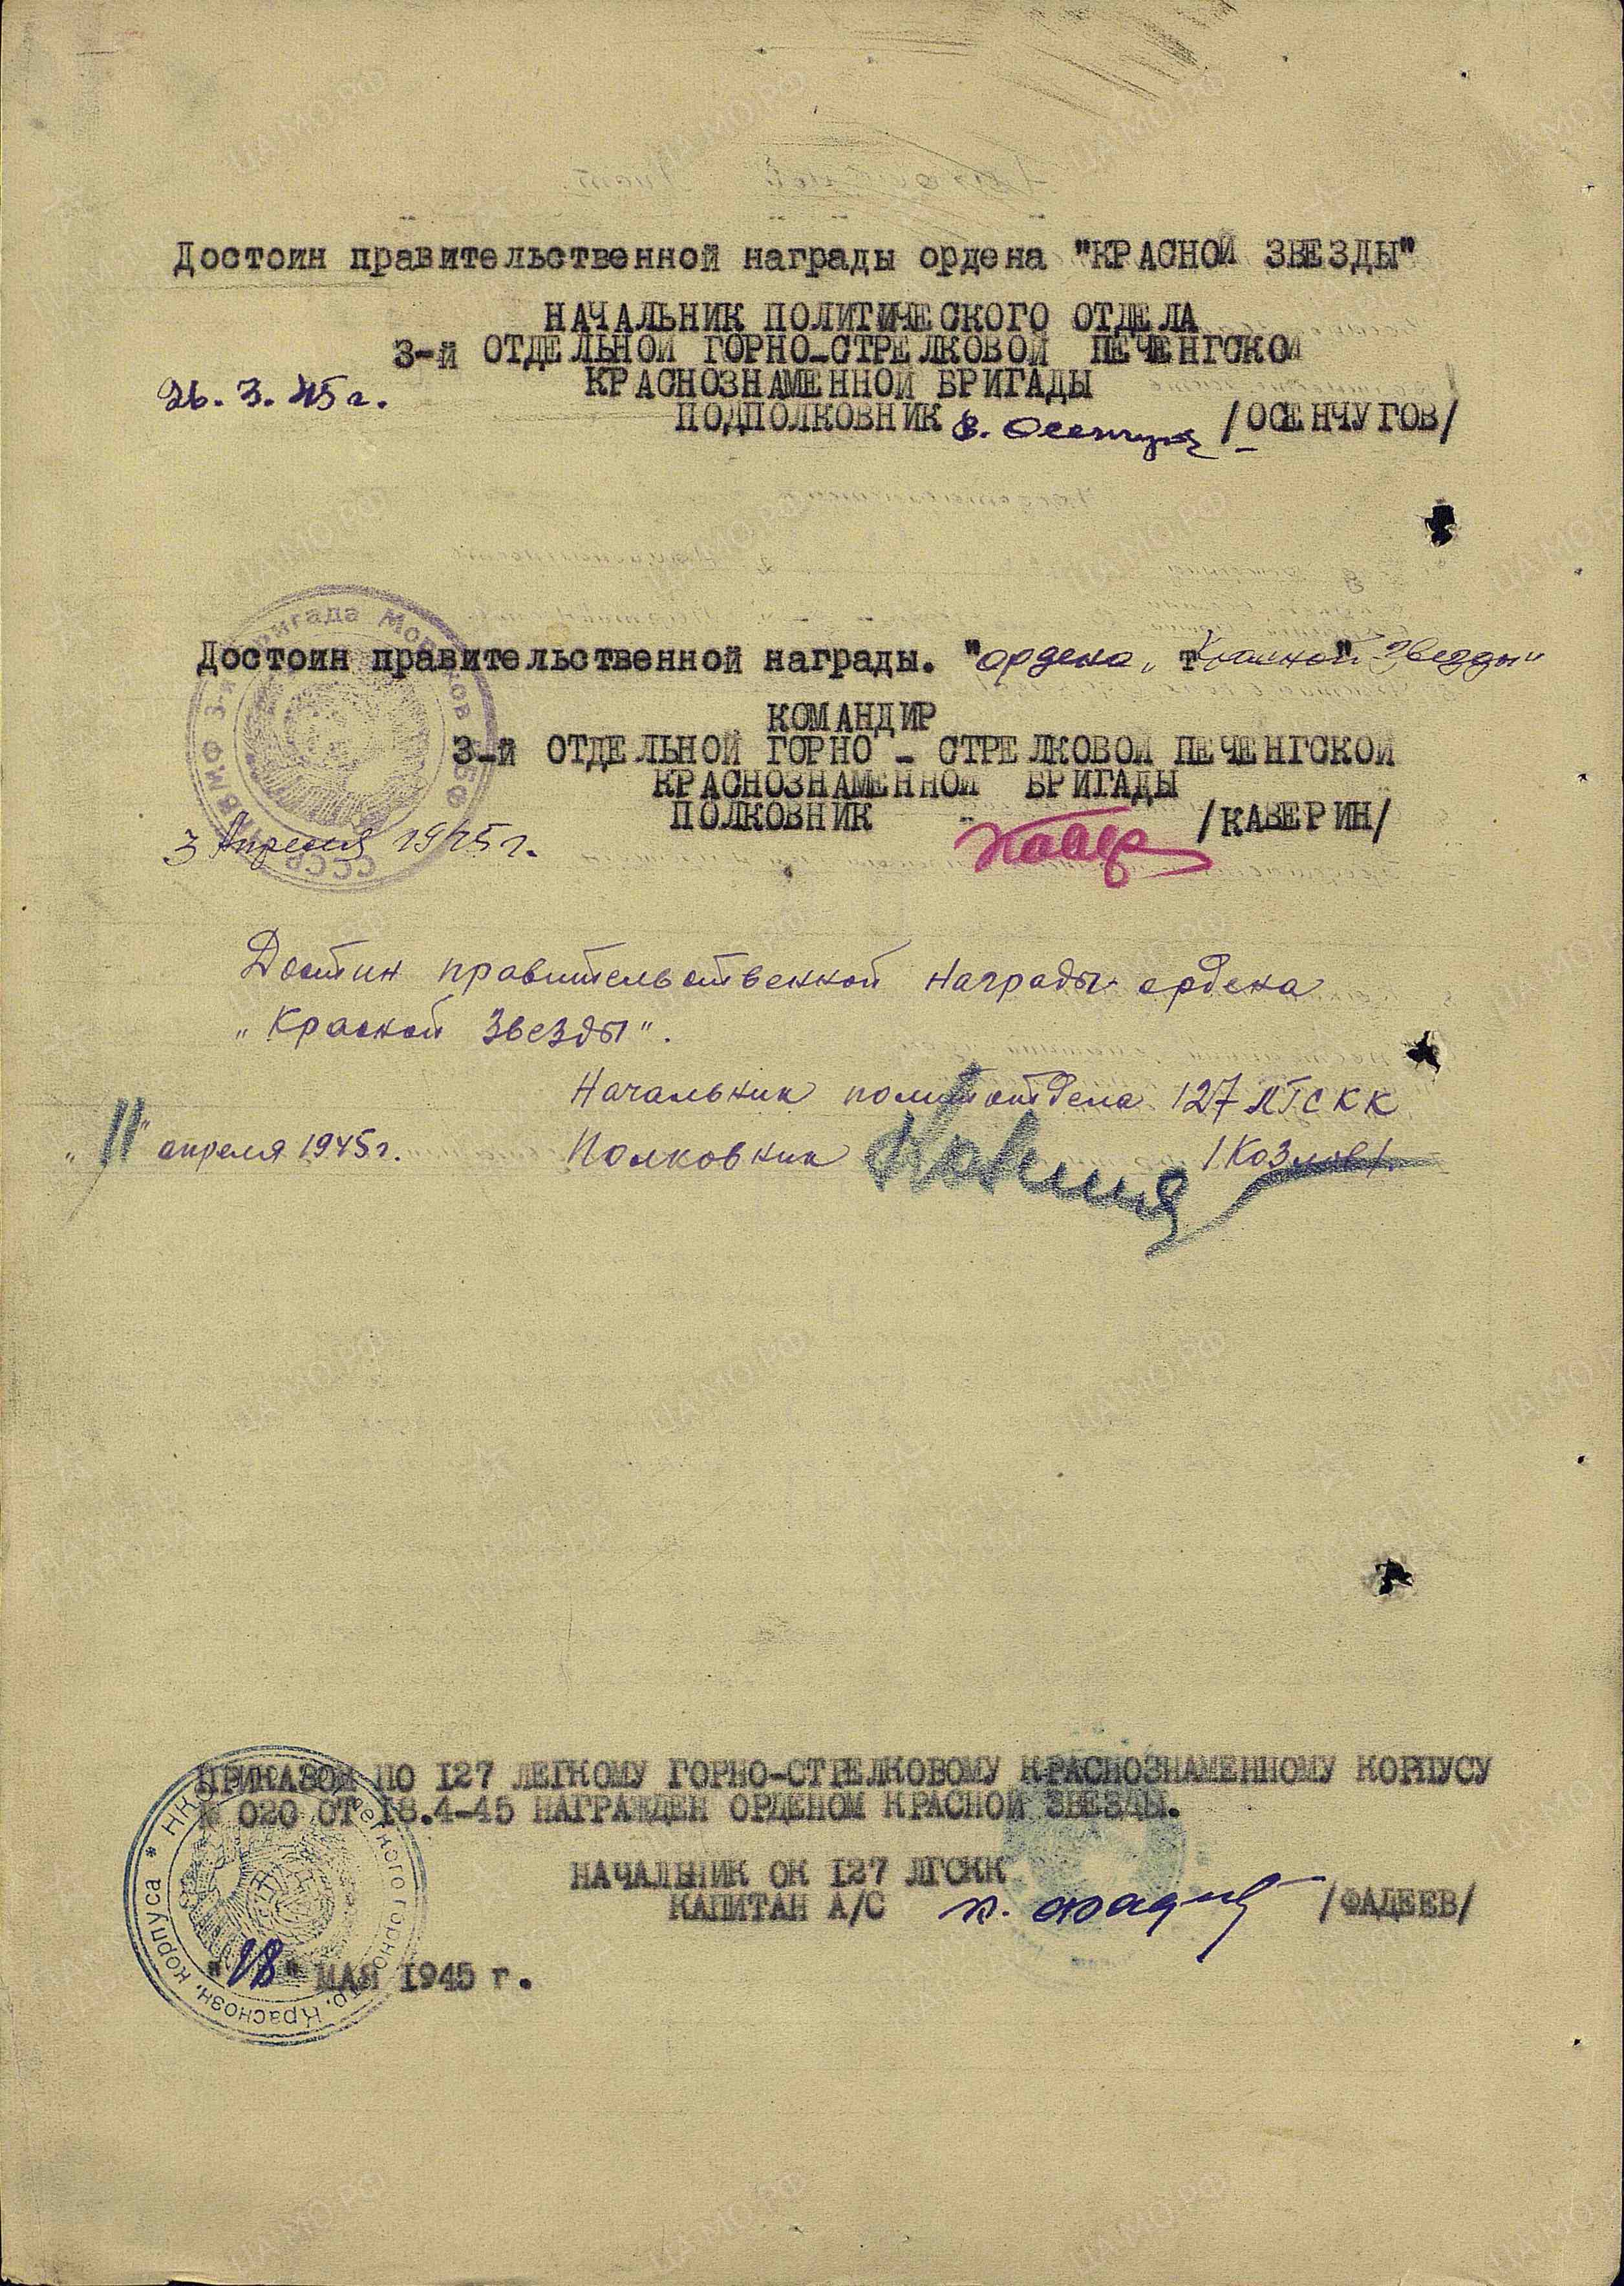 Достоин правительственной награды ордена "КРАСНОЙ ЗВЕЗДЫ"
НАЧАЛЬНИК ПОЛИТИЧЕСКОГО ОТДЕЛА
3-й ОТДЕЛЬНОЙ ГОРНО-СТРЕЛКОВОЙ ПЕЧЕНГСКОЙ
КРАСНОЗНАМЕННОЙ БРИГАДЫ
26. 3. 45 г.
ПОДПОЛКОВНИК /ОСЕНЧУГОВ/
Достоин правительственной награды. "ордена „ т Красной" Звезды"
КОМАНДИР
3-й ОТДЕЛЬНОЙ ГОРНО - СТРЕЛКОВОЙ ПЕЧЕНГСКОЙ
КРАСНОЗНАМЕННОЙ БРИГАДЫ
ПОЛКОВНИК /КАВЕРИН/
3 Апреля 1945 г.
Достоин правительственной награды ордена
„Красной Звезды".
Начальник политотдела 127 ЛГСКК
„11" апреля 1945 г. Полковник /Козлов/.
ПРИКАЗОМ ПО 127 ЛЕГКОМУ ГОРНО-СТРЕЛКОВОМУ КРАСНОЗНАМЕННОМУ КОРПУСУ
№ 020 ОТ 18.4-45 НАГРАЖДЕН ОРДЕНОМ КРАСНОЙ ЗВЕЗДЫ.
НАЧАЛЬНИК ОК 127 ЛГСКК
КАПИТАН А/С /ФАДЕЕВ/
"18" МАЯ 1945 г.